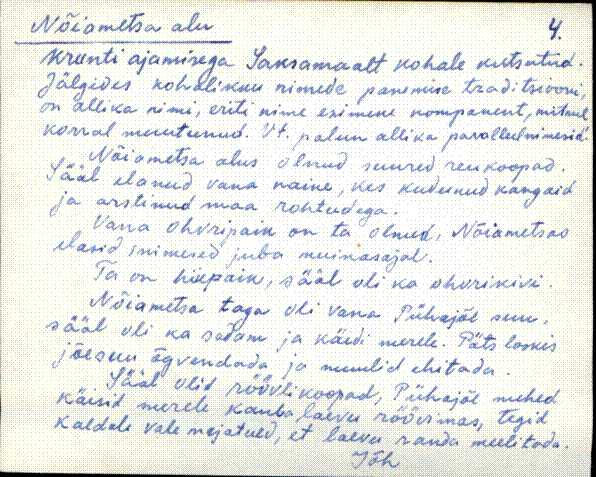 Nõiametsa alu 4.
krunti ajamisega Saksamaalt kohale kutsutud.
Jälgides kohalikku nimede panemise traditsiooni,
on allika nimi, eriti nime esimene komponent, mitmel
korral muutunud. Vt. palun allika paralleelnimesid.
Nõiametsa alus olnud suured reukoopad.
Sääl elanud vana naine, kes kudunud kangaid
ja arstinud maa rohtudega.
Vana ohvripaik on ta olnud, Nõiametsas
elasid inimesed juba muinasajal.
Ta on hiiepaik, sääl oli ka ohvrikivi.
Nõiametsa taga oli vana Pühajõe suu,
sääl oli ka sadam ja käidi merele. Päts laskis
jõesuu õgvendada ja muulid ehitada.
Sääl olid röövlikoopad, Pühajõe mehed
käisid merele kaubalaevu röövimas, tegid
kaldale vale majatuled, et laevu randa meelitada.
Jõh